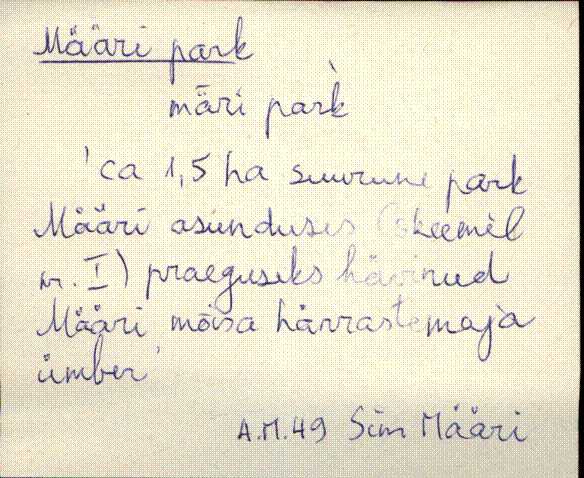 Määri park
märi park̀
'ca 1,5 ha suurune park
Määri asunduses (skeemil
nr. I) praeguseks hävinud
Määri mõisa härrastemaja
ümber'
A.M.49 Sim Määri